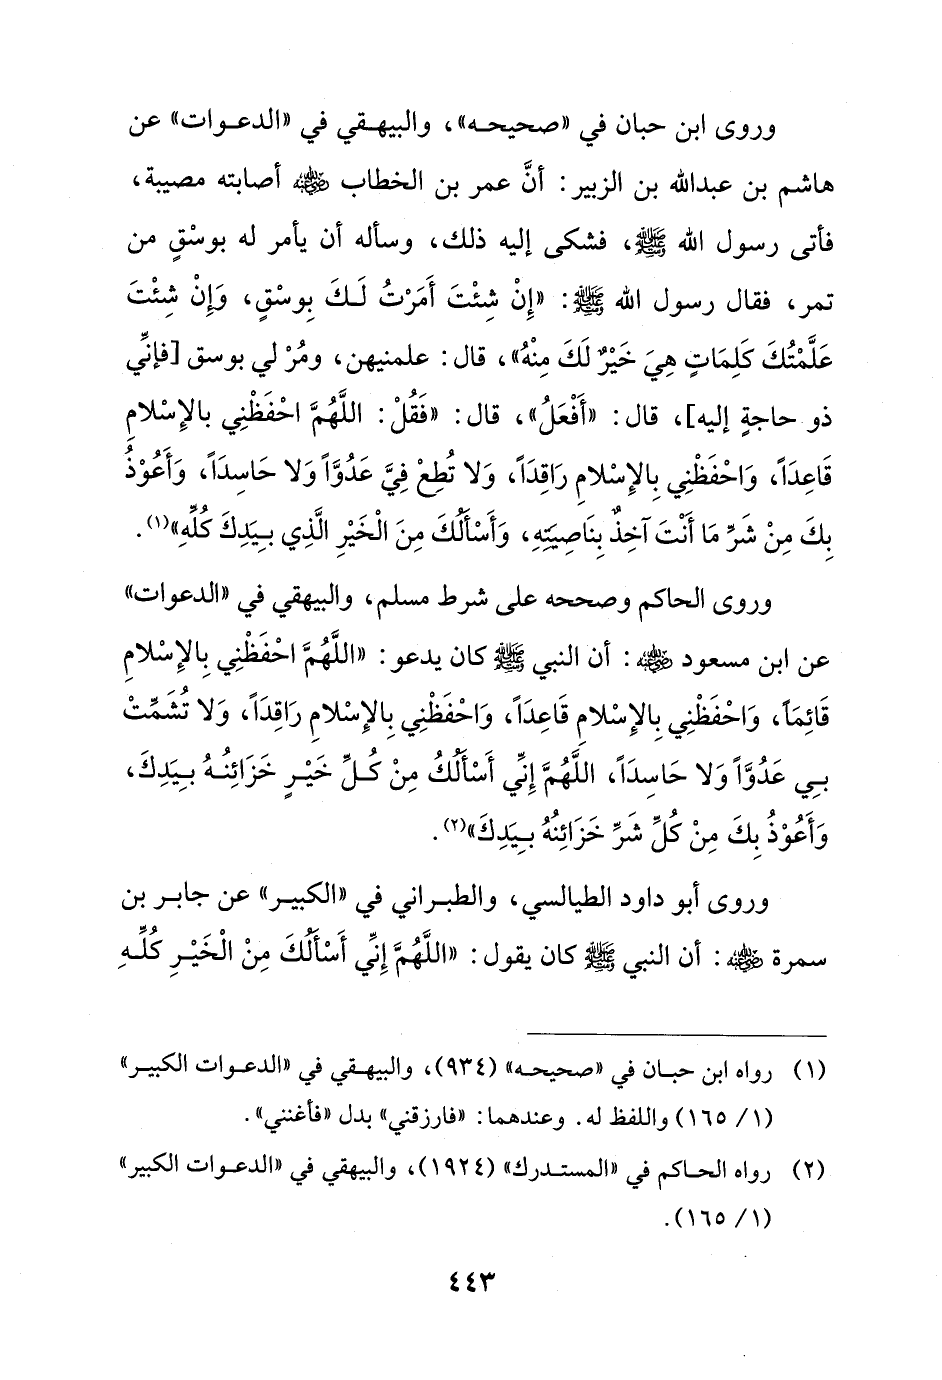 وروى ابن حبان في «صحيحه»، والبيهقي في «الدعوات» عن
هاشم بن عبدالله بن الزبير: أنَّ عمر بن الخطاب رضي الله عنه أصابته مصيبة،
فأتى رسول الله ﷺ، فشكى إليه ذلك، وسأله أن يأمر له بوسْقٍ من
تمر، فقال رسول الله ﷺ: «إِنْ شِئْتَ أَمَرْتُ لَكَ بِوسْقٍ، وَإِنْ شِئْتَ
عَلَّمْتُكَ كَلِمَاتٍ هِيَ خَيْرٌ لَكَ مِنْهُ»، قال: علمنيهن، ومُرْ لي بوسق [فإنِّي
ذو حاجةٍ إليه]، قال: «أَفْعَلُ»، قال: «فَقُلْ: اللَّهُمَّ احْفَظْنِي بالإِسْلامِ
قَاعِدَاً، وَاحْفَظْنِي بِالإِسْلامِ رَاقِدَاً، وَلا تُطِعْ فِيَّ عَدُوَّاً وَلا حَاسِدَاً، وَأَعُوْذُ
بِكَ مِنْ شَرِّ مَا أَنْتَ آخِذٌ بِنَاصِيَتِهِ، وَأَسْأَلُكَ مِنَ الْخَيْرِ الَّذِي بِيَدِكَ كُلِّهِ»(١).
وروى الحاكم وصححه على شرط مسلم، والبيهقي في «الدعوات»
عن ابن مسعود رضي الله عنه: أن النبي ﷺ كان يدعو: «اللَّهُمَّ احْفَظْنِي بِالإِسْلامِ
قَائِمَاً، وَاحْفَظْنِي بِالإِسْلامِ قَاعِدَاً، وَاحْفَظْنِي بِالإِسْلامِ رَاقِدَاً، وَلا تُشَمِّتْ
بِي عَدُوَّاً وَلا حَاسِدَاً، اللَّهُمَّ إِنِّي أَسْأَلُكُ مِنْ كُلِّ خَيْرٍ خَزَائِنُهُ بِيَدِكَ،
وَأَعُوْذُ بِكَ مِنْ كُلِّ شَرِّ خَزَائِنُهُ بِيَدِكَ»(٢).
وروى أبو داود الطيالسي، والطبراني في «الكبير» عن جابر بن
سمرة رضي الله عنه: أن النبي ﷺ كان يقول: «اللَّهُمَّ إِنِّي أَسْأَلُكَ مِنْ الْخَيْرِ كُلِّهِ
(١) رواه ابن حبان في «صحيحه» (٩٣٤)، والبيهقي في «الدعوات الكبير»
(١/ ١٦٥) واللفظ له. وعندهما: «فارزقني» بدل «فأغنني».
(٢) رواه الحاكم في «المستدرك» (١٩٢٤)، والبيهقي في «الدعوات الكبير»
(١/ ١٦٥).
٤٤٣